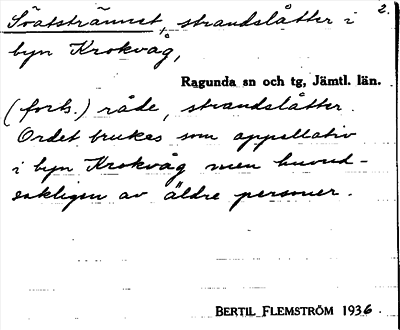 2.
Söätstrännet, strandslåtter i
byn Krokvåg,
Ragunda sn och tg, Jämtl. län.
(forts.) råde, strandslåtter.
Ordet brukes som appellativ
i byn Krokvåg men huvud-
sakligen av äldre personer.
BERTIL FLEMSTRÖM 1936.